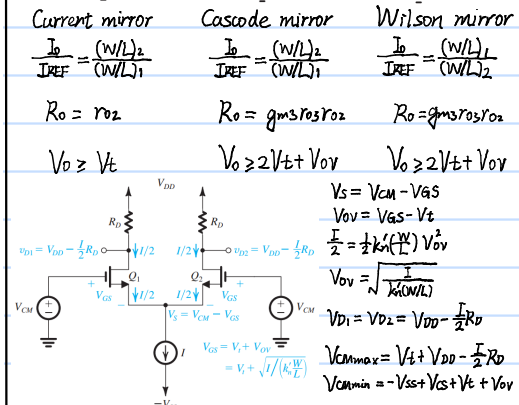 Current mirror
I₀/IREF = (W/L)₂/(W/L)₁
Ro = ro2
Vo ≥ Vt
Cascode mirror
I₀/IREF = (W/L)₂/(W/L)₁
Ro = gm3ro3ro2
Vo ≥ 2Vt + Vov
Wilson mirror
I₀/IREF = (W/L)₁/(W/L)₂
Ro = gm3ro3ro2
Vo ≥ 2Vt + Vov
V_DD
R_D
R_D
v_D1 = V_DD − I/2 R_D
I/2
I/2
v_D2 = V_DD − I/2 R_D
Q₁
Q₂
+
V_GS
−
I/2
I/2
−
V_GS
+
V_CM
V_S = V_CM − V_GS
V_CM
I
V_GS = V_t + V_OV
= V_t + √(I/(k′_n W/L))
Vs = VCM − VGS
Vov = VGS − Vt
I/2 = 1/2 kn′(W/L) Vov²
Vov = √(I/(kn′(W/L)))
VD1 = VD2 = VDD − I/2 RD
VCMmax = Vt + VDD − I/2 RD
VCMmin = −VSS + VCS + Vt + Vov